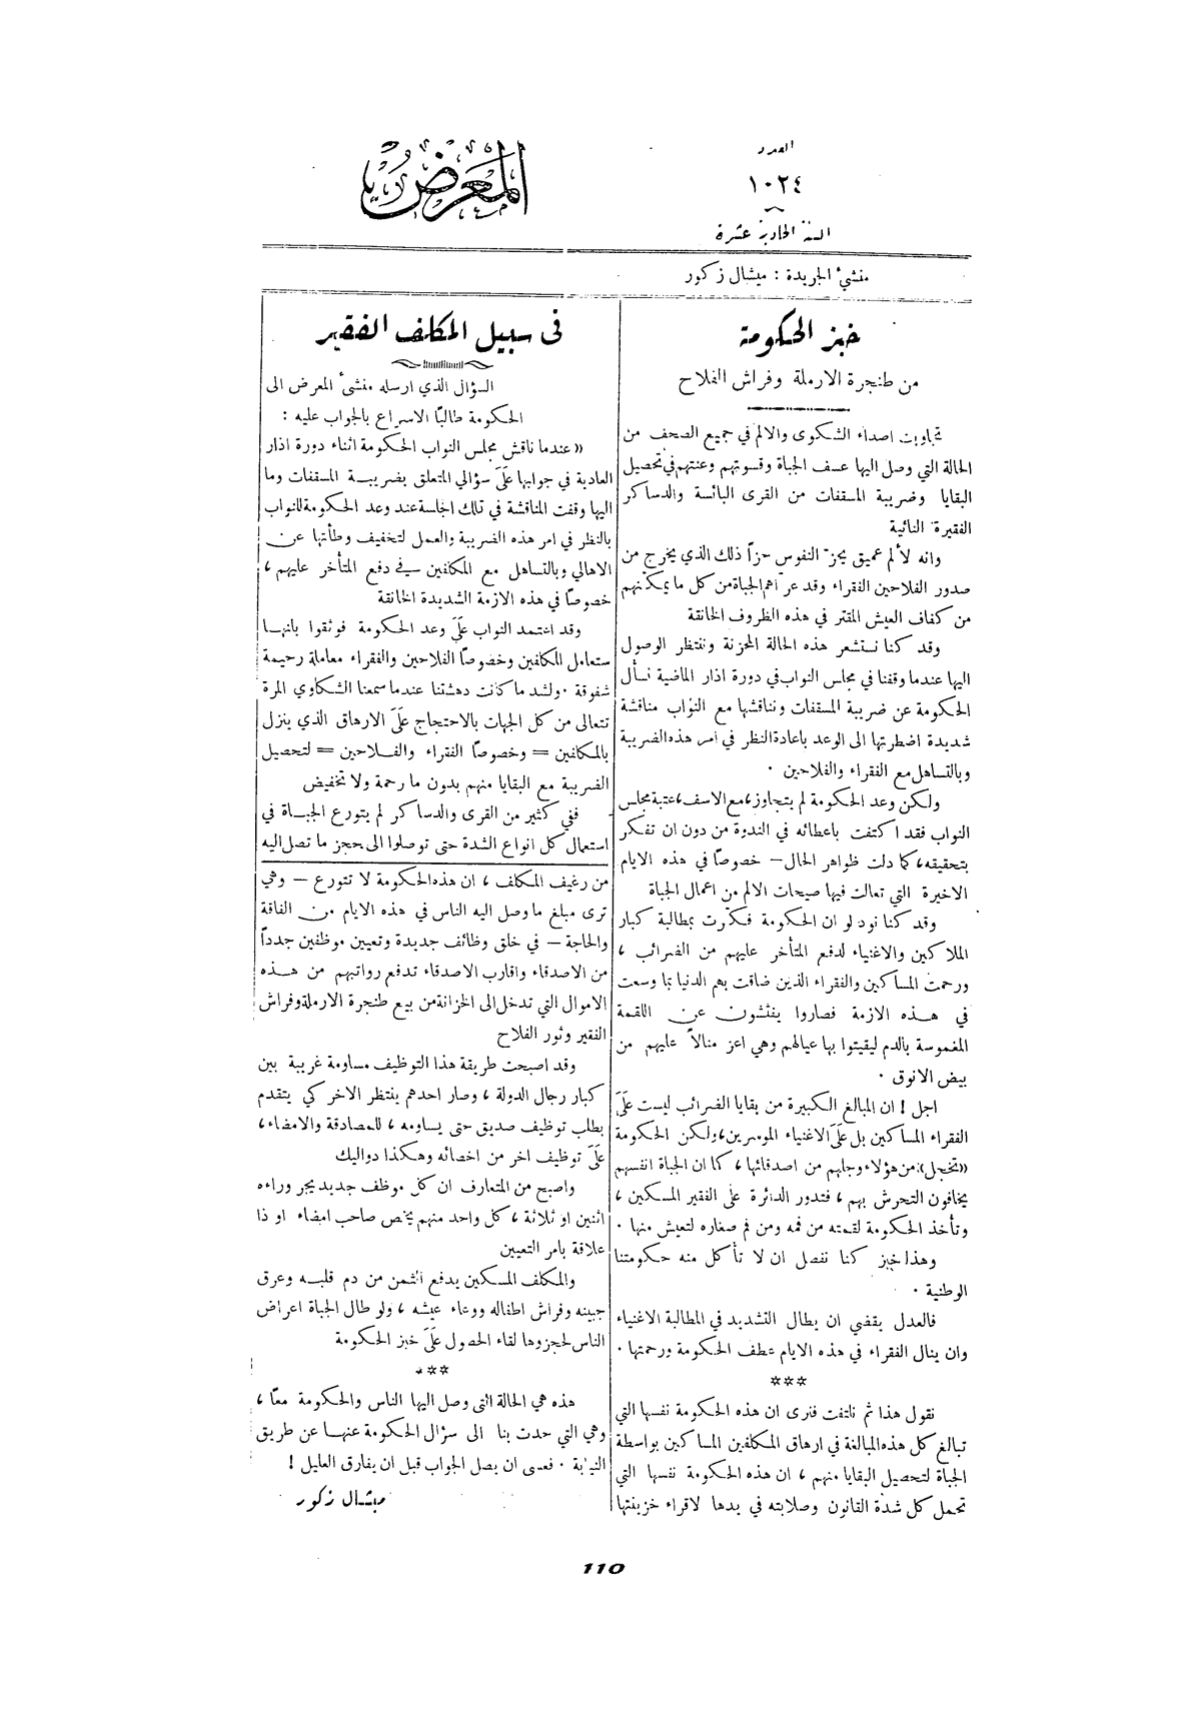 العدد
١٠٢٤
السنة الحادية عشرة
المعرض
منشئ الجريدة : ميشال زكور
خبز الحكومة
من طنجرة الارملة وفراش الفلاح
تجاوبت اصداء الشكوى والالم في جميع الصحف من
الحالة التي وصل اليها عسف الجباة وقسوتهم وعنتهم في تحصيل
البقايا وضريبة المسقفات من القرى البائسة والدساكر
الفقيرة النائية
وانه لألم عميق يحز النفوس حزاً ذلك الذي يخرج من
صدور الفلاحين الفقراء وقد عراهم الجباة من كل ما يمكنهم
من كفاف العيش المقتر في هذه الظروف الخانقة
وقد كنا نستشعر هذه الحالة المحزنة وننتظر الوصول
اليها عندما وقفنا في مجلس النواب في دورة اذار الماضية نسأل
الحكومة عن ضريبة المسقفات ونناقشها مع النواب مناقشة
شديدة اضطرتها الى الوعد باعادة النظر في امر هذه الضريبة
وبالتساهل مع الفقراء والفلاحين .
ولكن وعد الحكومة لم يتجاوز، مع الاسف، عتبة مجلس
النواب فقد اكتفت باعطائه في الندوة من دون ان تفكر
بتحقيقه، كما دلت ظواهر الحال – خصوصاً في هذه الايام
الاخيرة التي تعالت فيها صيحات الالم من اعمال الجباة
وقد كنا نود لو ان الحكومة فكرت بمطالبة كبار
الملاكين والاغنياء لدفع المتأخر عليهم من الضرائب ،
ورحمت المساكين والفقراء الذين ضاقت بهم الدنيا بما وسعت
في هذه الازمة فصاروا يفتشون عن اللقمة
المغموسة بالدم ليقيتوا بها عيالهم وهي اعز منالاً عليهم من
بيض الانوق .
اجل ! ان المبالغ الكبيرة من بقايا الضرائب ليست على
الفقراء المساكين بل على الاغنياء الموسرين، ولكن الحكومة
«تخجل» من هؤلاء وجلهم من اصدقائها ، كما ان الجباة انفسهم
يخافون التحرش بهم ، فتدور الدائرة على الفقير المسكين ،
وتأخذ الحكومة لقمته من فمه ومن فم صغاره لتعيش منها .
وهذا خبز كنا نفضل ان لا تأكل منه حكومتنا
الوطنية .
فالعدل يقضي ان يطال التشديد في المطالبة الاغنياء
وان ينال الفقراء في هذه الايام عطف الحكومة ورحمتها .
***
نقول هذا ثم نلتفت فنرى ان هذه الحكومة نفسها التي
تبالغ كل هذه المبالغة في ارهاق المكلفين المساكين بواسطة
الجباة لتحصيل البقايا منهم ، ان هذه الحكومة نفسها التي
تحمل كل شدة القانون وصلابته في يدها لاقراء خزينتها
فى سبيل المكلف الفقير
السؤال الذي ارسله منشئ المعرض الى
الحكومة طالباً الاسراع بالجواب عليه :
« عندما ناقش مجلس النواب الحكومة اثناء دورة اذار
العادية في جوابها على سؤالي المتعلق بضريبة المسقفات وما
اليها وقفت المناقشة في تلك الجلسة عند وعد الحكومة للنواب
بالنظر في امر هذه الضريبة والعمل لتخفيف وطأتها عن
الاهالي وبالتساهل مع المكلفين في دفع المتأخر عليهم ،
خصوصاً في هذه الازمة الشديدة الخانقة
وقد اعتمد النواب على وعد الحكومة فوثقوا بانها
ستعامل المكلفين وخصوصاً الفلاحين والفقراء معاملة رحيمة
شفوقة . ولشد ما كانت دهشتنا عندما سمعنا الشكاوي المرة
تتعالى من كل الجهات بالاحتجاج على الارهاق الذي ينزل
بالمكلفين = وخصوصاً الفقراء والفلاحين = لتحصيل
الضريبة مع البقايا منهم بدون ما رحمة ولا تخفيض
ففي كثير من القرى والدساكر لم يتورع الجباة في
استعمال كل انواع الشدة حتى توصلوا الى حجز ما تصل اليه
من رغيف المكلف ، ان هذه الحكومة لا تتورع – وهي
ترى مبلغ ما وصل اليه الناس في هذه الايام من الفاقة
والحاجة – في خلق وظائف جديدة وتعيين موظفين جدداً
من الاصدقاء واقارب الاصدقاء تدفع رواتبهم من هذه
الاموال التي تدخل الى الخزانة من بيع طنجرة الارملة وفراش
الفقير وثور الفلاح
وقد اصبحت طريقة هذا التوظيف مساومة غريبة بين
كبار رجال الدولة ، وصار احدهم ينتظر الاخر كي يتقدم
بطلب توظيف صديق حتى يساومه ، للمصادقة والامضاء،
على توظيف اخر من اخصائه وهكذا دواليك
واصبح من المتعارف ان كل موظف جديد يجر وراءه
اثنين او ثلاثة ، كل واحد منهم يخص صاحب امضاء او ذا
علاقة بامر التعيين
والمكلف المسكين يدفع الثمن من دم قلبه وعرق
جبينه وفراش اطفاله ووعاء عيشه ، ولو طال الجباة اعراض
الناس لحجزوها لقاء الحصول على خبز الحكومة
***
هذه هي الحالة التي وصل اليها الناس والحكومة معاً ،
وهي التي حدت بنا الى سؤال الحكومة عنها عن طريق
النيابة . فعسى ان يصل الجواب قبل ان يفارق العليل !
ميشال زكور
110